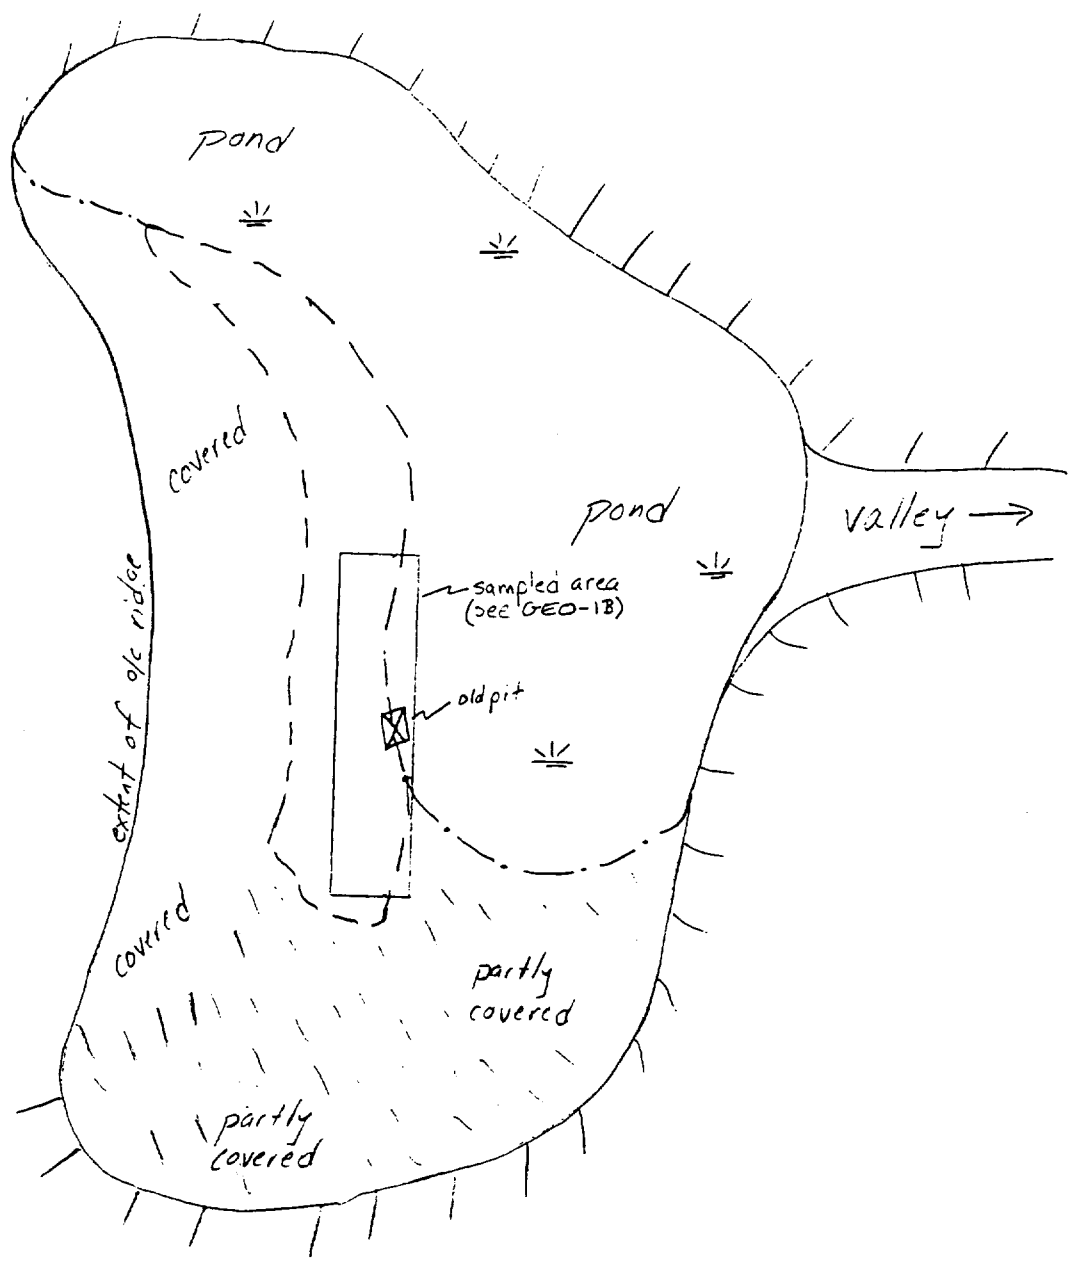 pond
covered
pond
valley
sampled area
(see GEO-1B)
extent of o/c ridge
old pit
covered
partly
covered
partly
covered